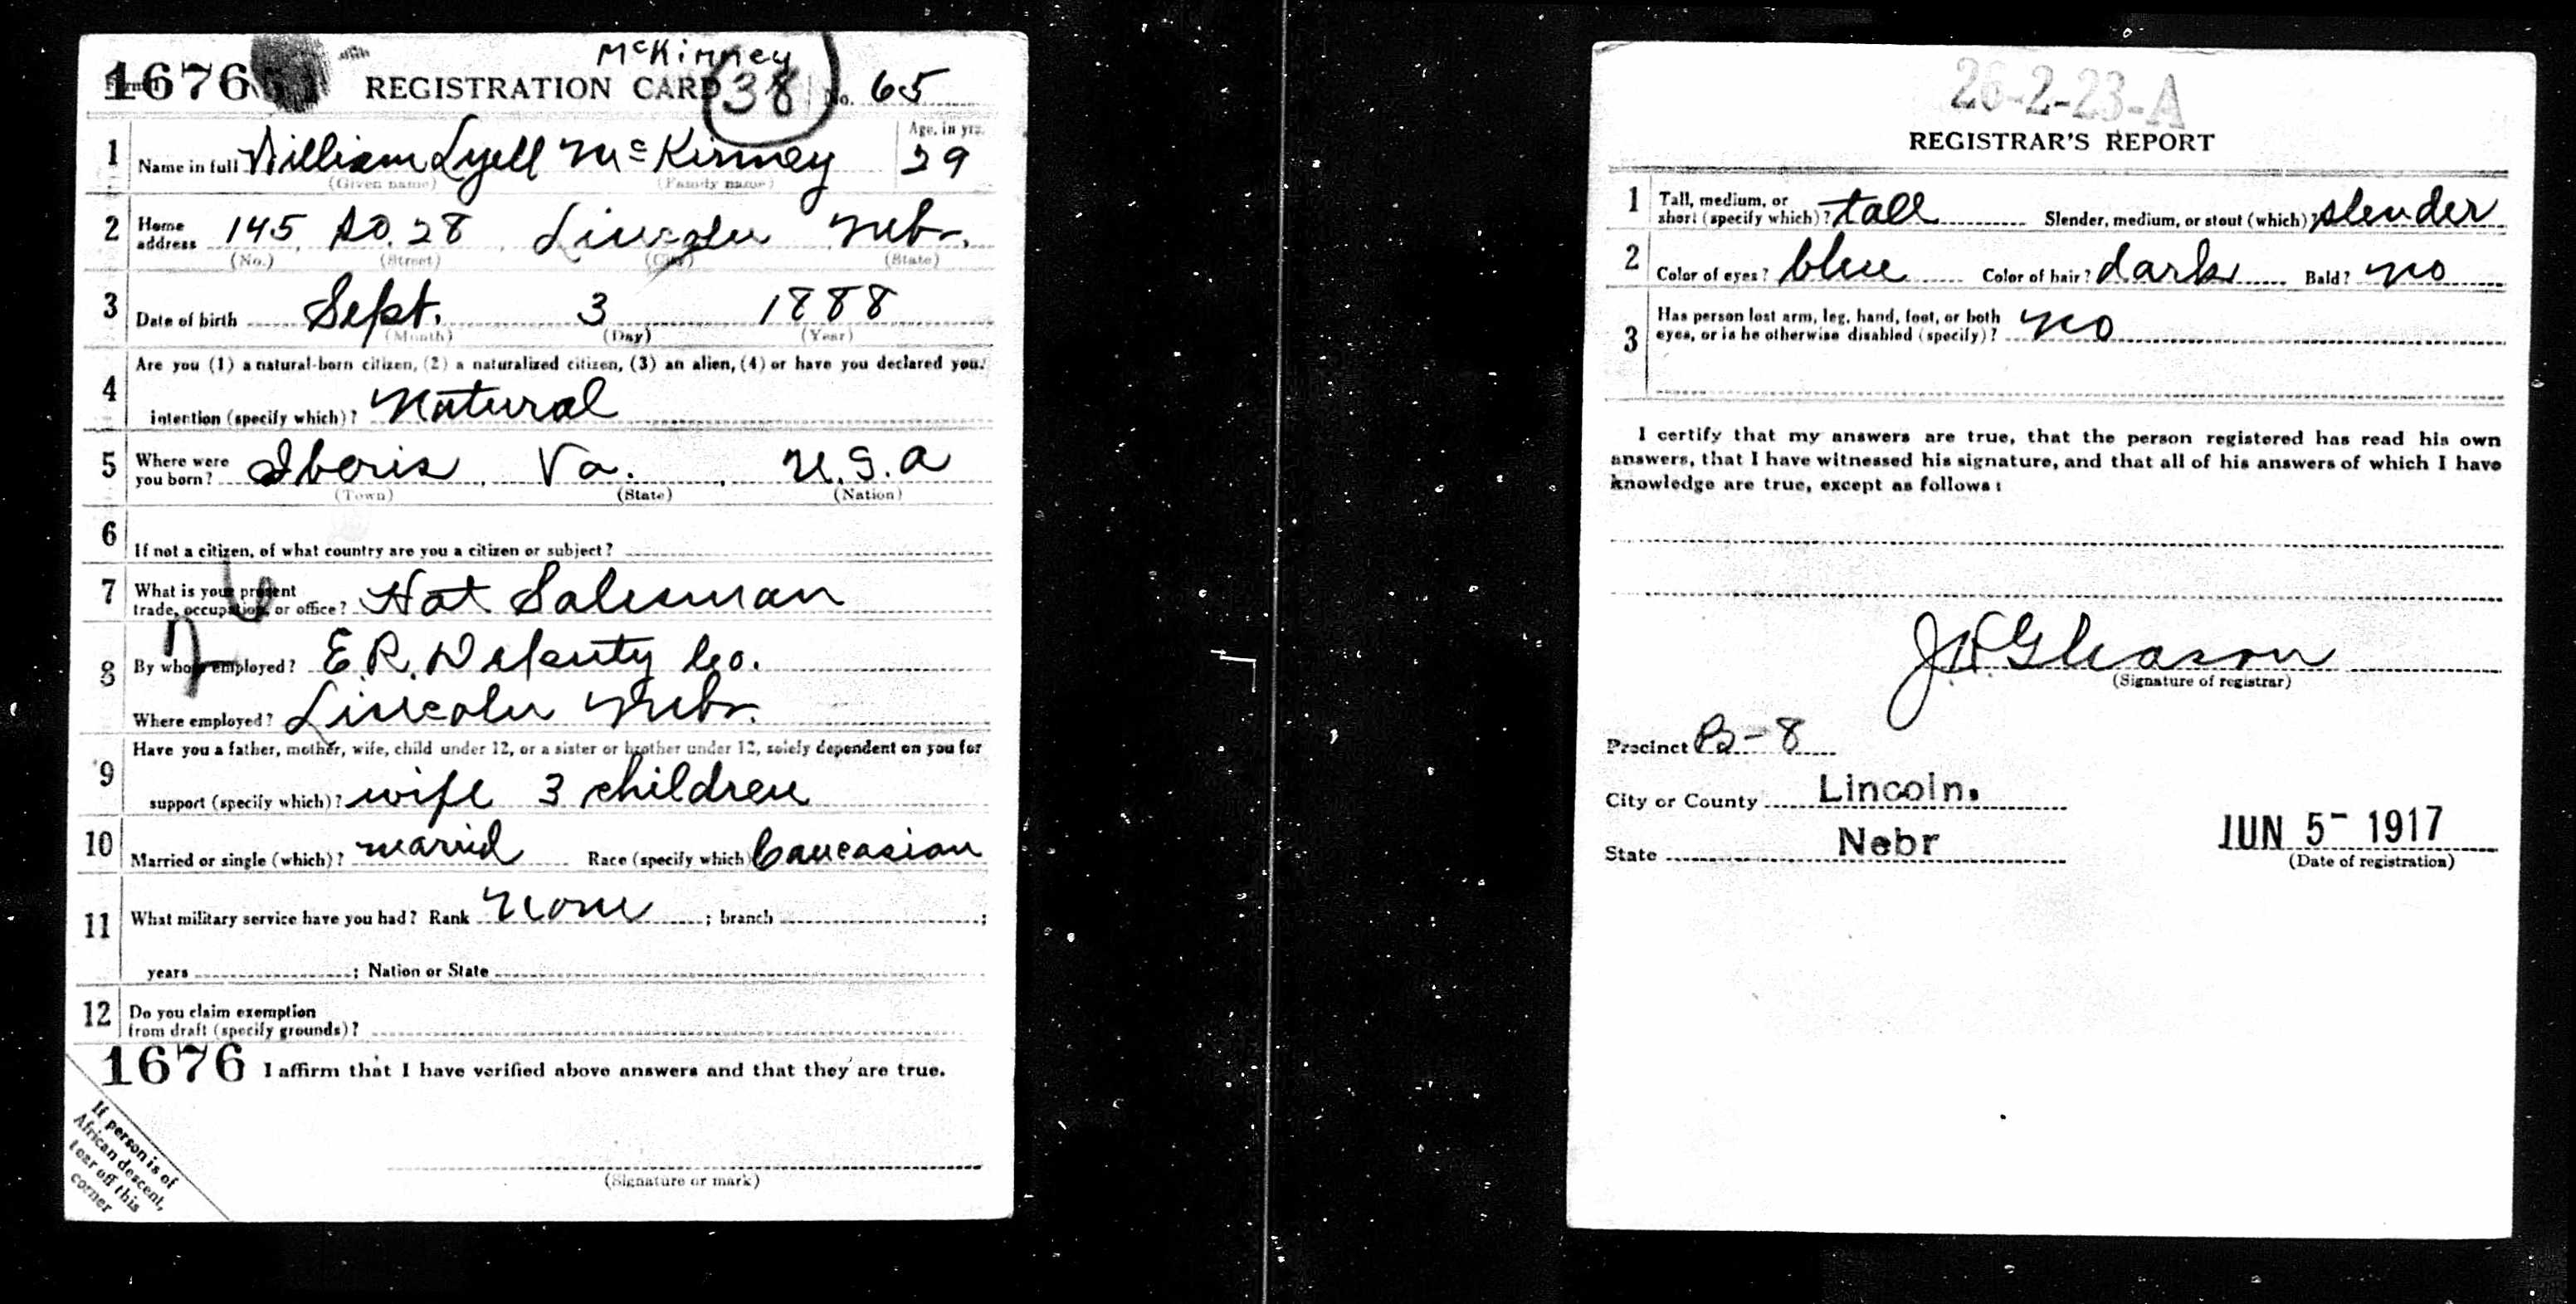 McKinney
1676
REGISTRATION CARD 38 No. 65
1 Name in full William Lyell McKinney Age, in yrs. 29
(Given name) (Family name)
2 Home address 145 So. 28 Lincoln Nebr.
(No.) (Street) (City) (State)
3 Date of birth Sept. 3 1888
(Month) (Day) (Year)
Are you (1) a natural-born citizen, (2) a naturalized citizen, (3) an alien, (4) or have you declared your
4 intention (specify which)? Natural
5 Where were you born? Iberis Va. U.S.A
(Town) (State) (Nation)
6 If not a citizen, of what country are you a citizen or subject?
7 What is your present
trade, occupation, or office? Hat Salesman
8 By whom employed? E.R. Deputy Co.
Where employed? Lincoln Nebr.
Have you a father, mother, wife, child under 12, or a sister or brother under 12, solely dependent on you for
9 support (specify which)? wife 3 children
10 Married or single (which)? married Race (specify which) Caucasian
11 What military service have you had? Rank None ; branch ;
years ; Nation or State
12 Do you claim exemption
from draft (specify grounds)?
1676 I affirm that I have verified above answers and that they are true.
(Signature or mark)
If person is of
African descent,
tear off this
corner
26-2-23-A
REGISTRAR'S REPORT
1 Tall, medium, or
short (specify which)? tall Slender, medium, or stout (which) slender
2 Color of eyes? blue Color of hair? dark Bald? No
3 Has person lost arm, leg, hand, foot, or both
eyes, or is he otherwise disabled (specify)? No
I certify that my answers are true, that the person registered has read his own
answers, that I have witnessed his signature, and that all of his answers of which I have
knowledge are true, except as follows:
J.H. Gleason
(Signature of registrar)
Precinct B-8
City or County Lincoln.
State Nebr
JUN 5- 1917
(Date of registration)